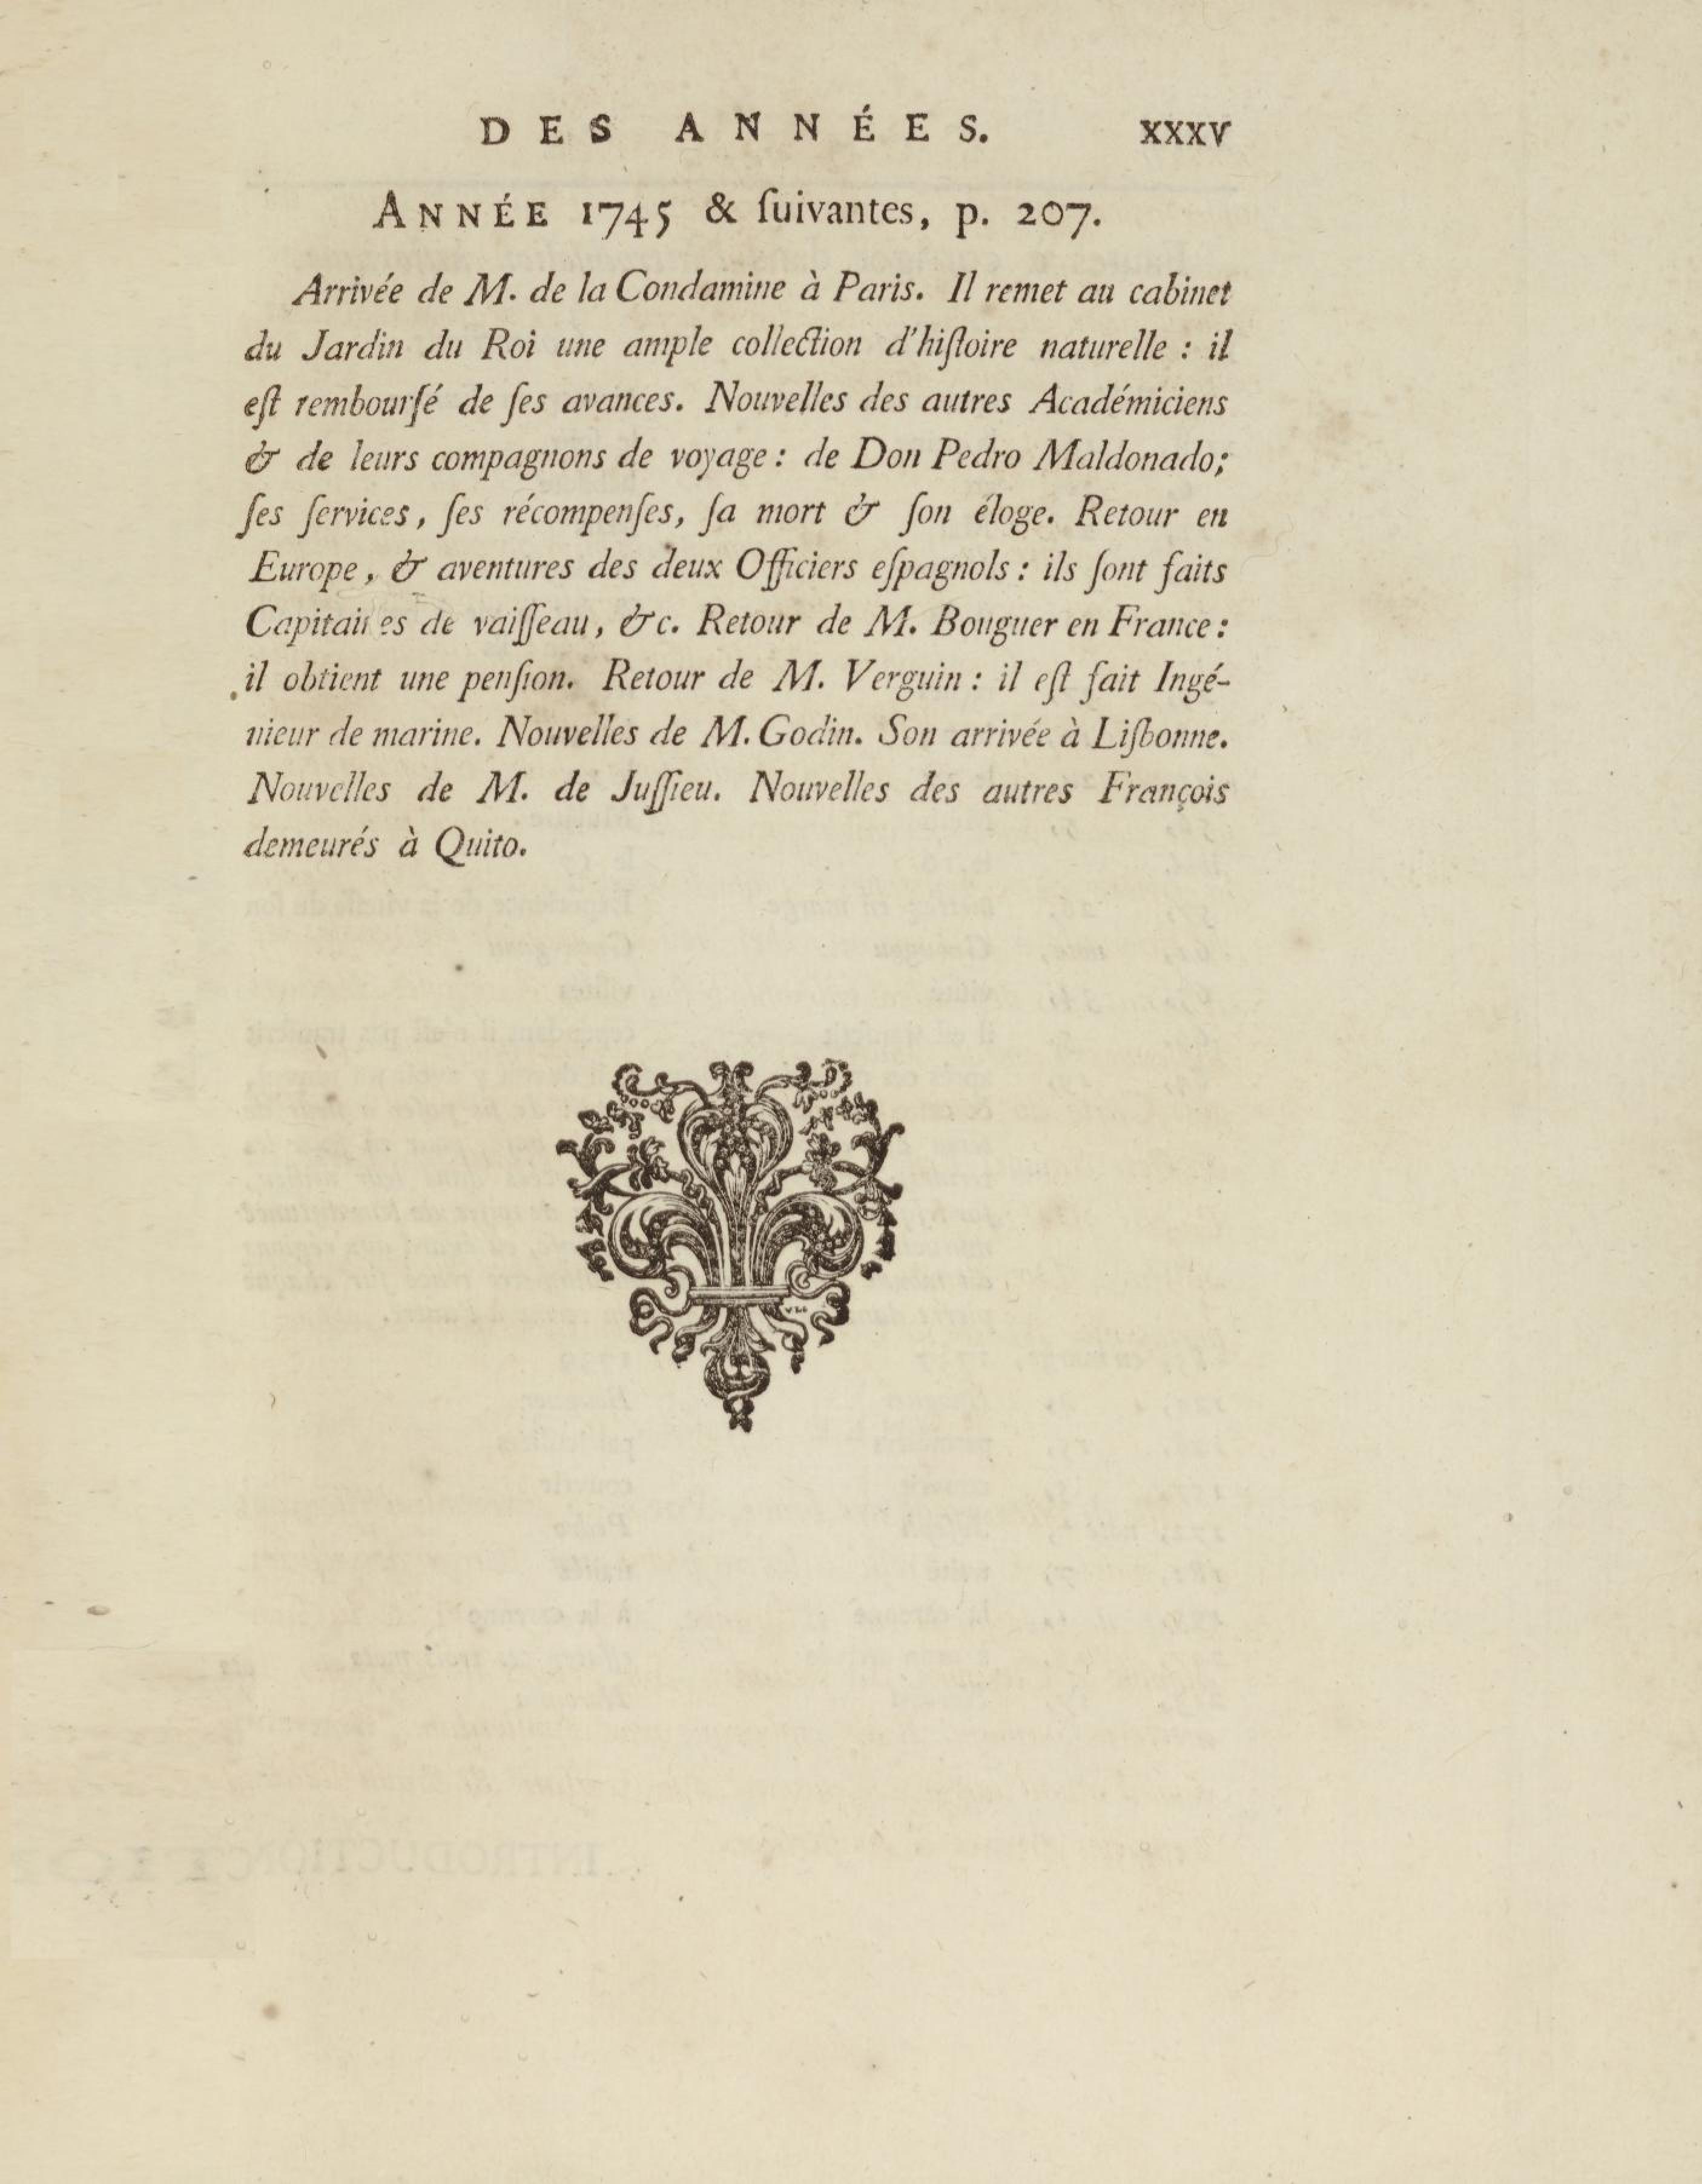 DES ANNÉES. XXXV
ANNÉE 1745 & ſuivantes, p. 207.
Arrivée de M. de la Condamine à Paris. Il remet au cabinet
du Jardin du Roi une ample collection d'hiſtoire naturelle : il
eſt rembourſé de ſes avances. Nouvelles des autres Académiciens
& de leurs compagnons de voyage : de Don Pedro Maldonado;
ſes ſervices, ſes récompenſes, ſa mort & ſon éloge. Retour en
Europe, & aventures des deux Officiers eſpagnols : ils ſont faits
Capitaines de vaiſſeau, &c. Retour de M. Bouguer en France :
il obtient une penſion. Retour de M. Verguin : il eſt fait Ingé-
nieur de marine. Nouvelles de M. Godin. Son arrivée à Liſbonne.
Nouvelles de M. de Juſſieu. Nouvelles des autres François
demeurés à Quito.